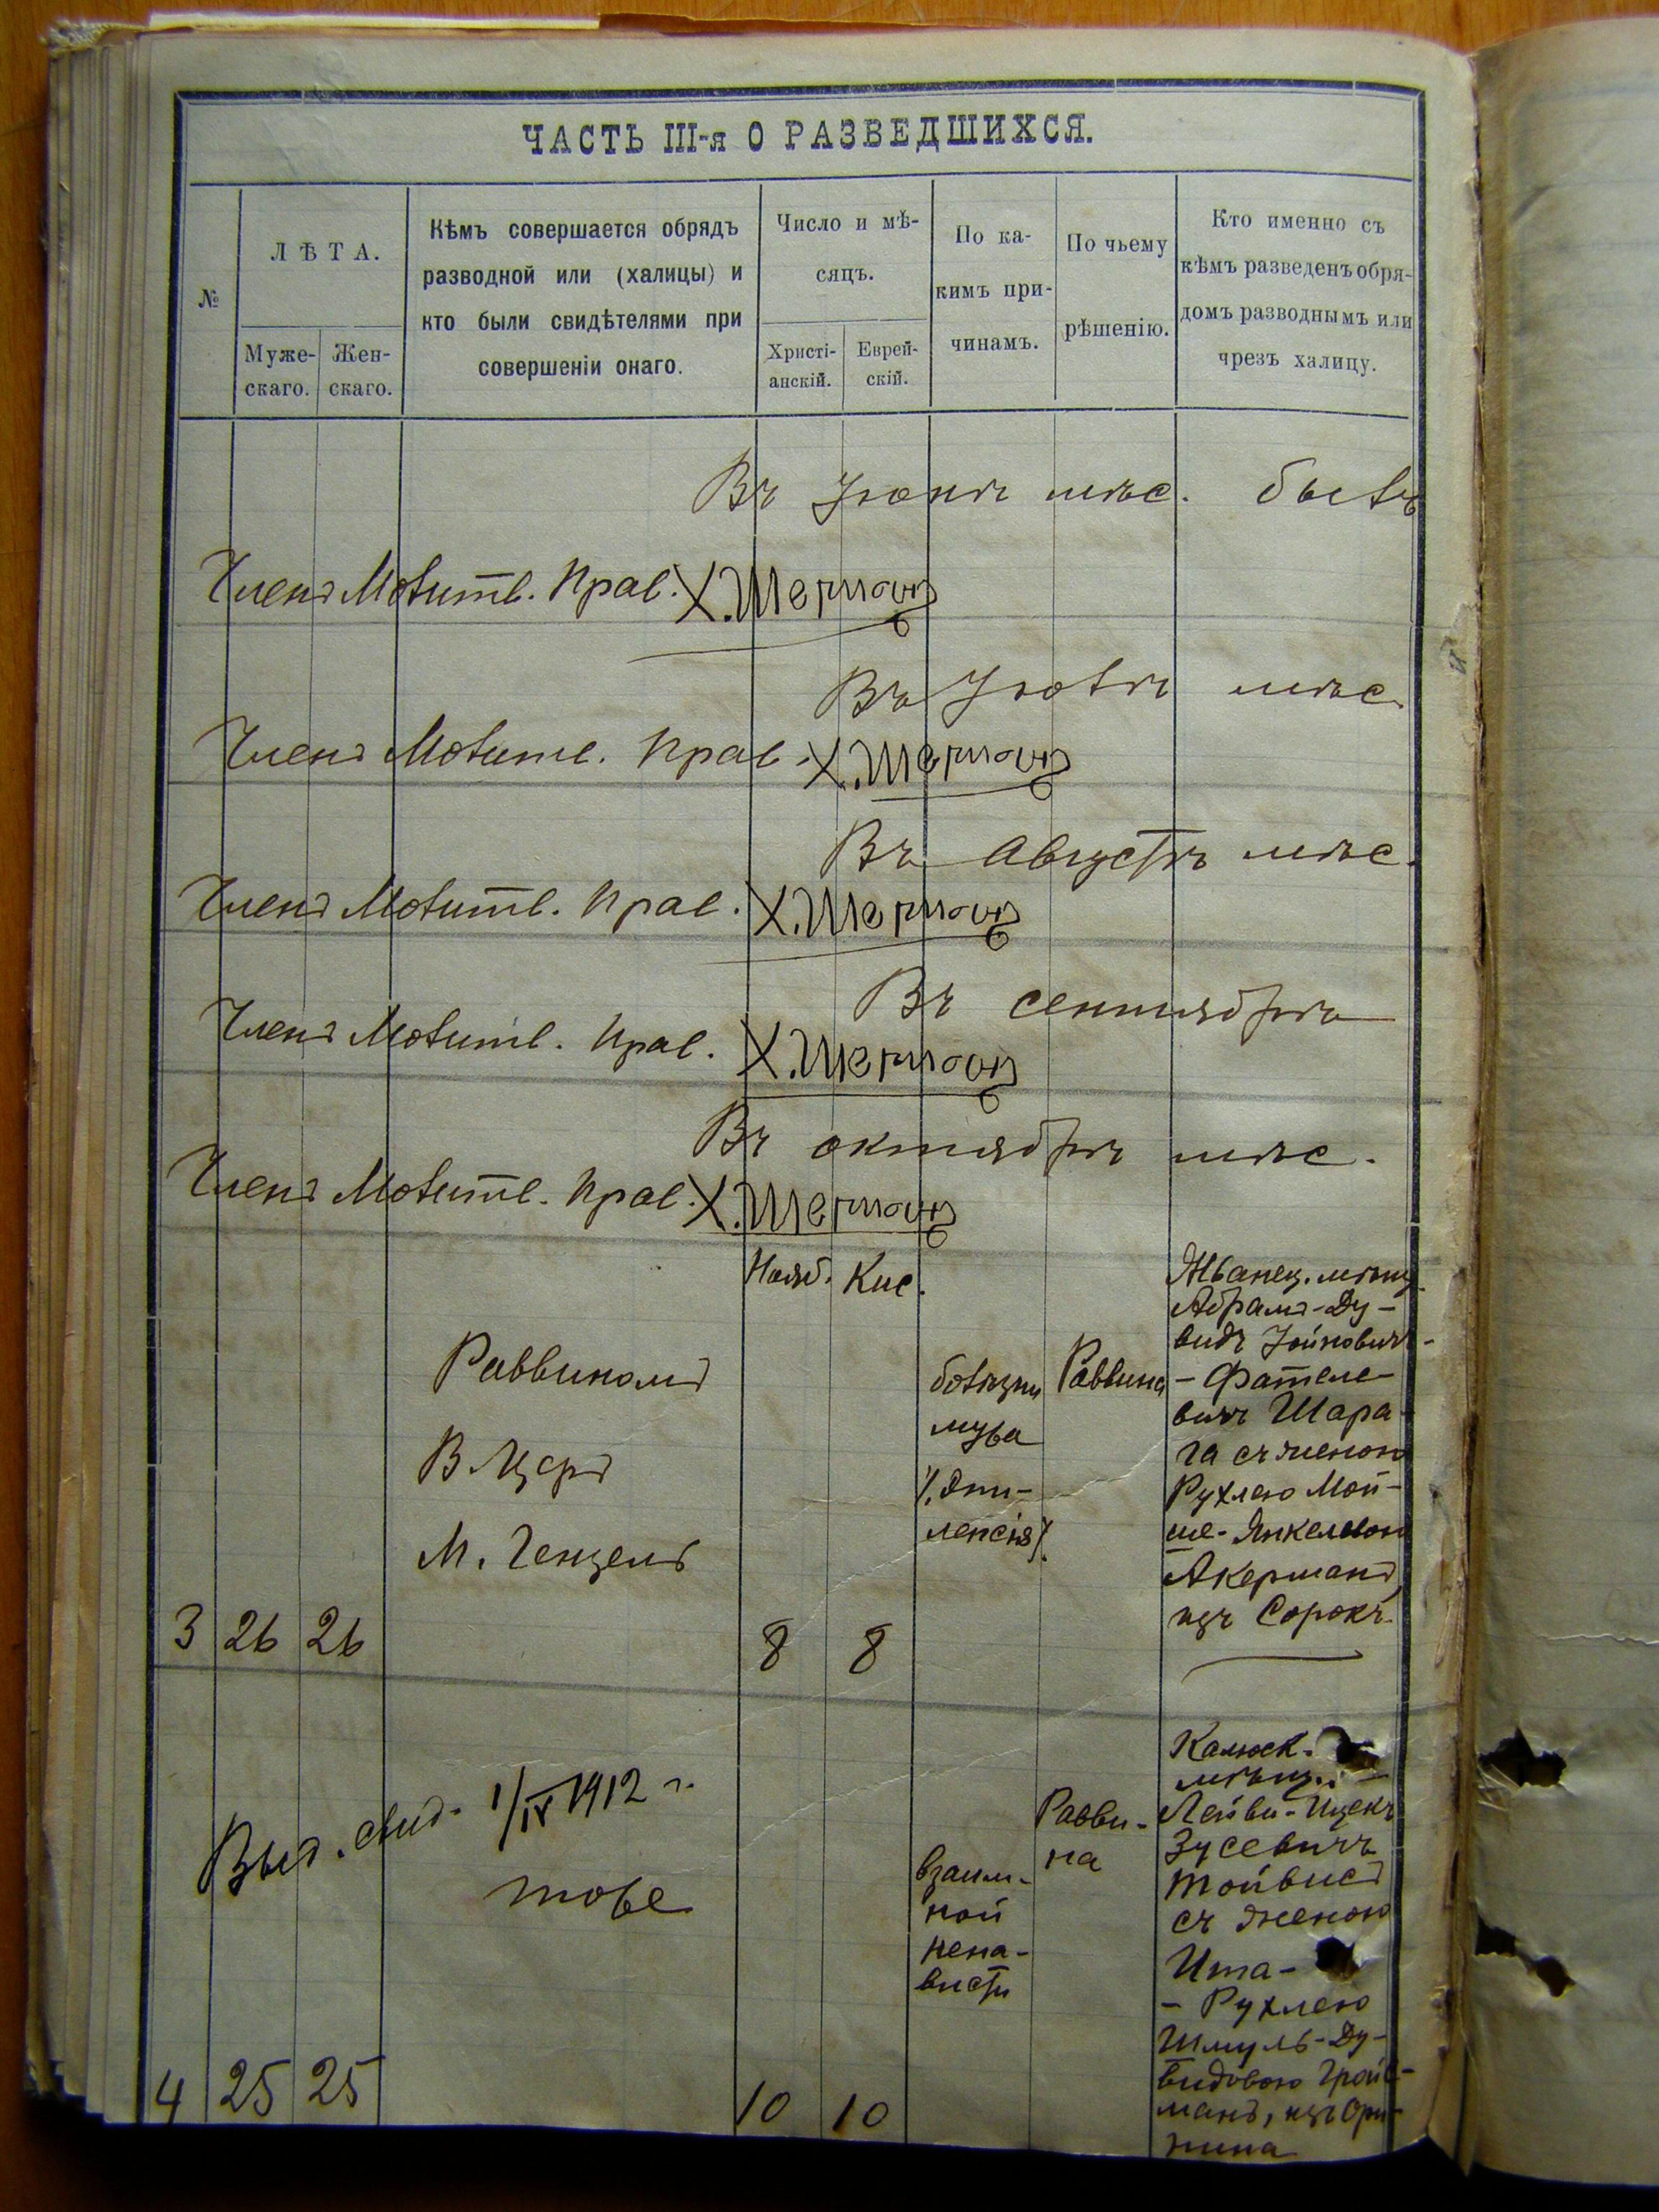 ЧАСТЬ III-я О РАЗВЕДШИХСЯ.
№
ЛѢТА.
Муже-
скаго.
Жен-
скаго.
Кѣмъ совершается обрядъ
разводной или (халицы) и
кто были свидѣтелями при
совершеніи онаго.
Число и мѣ-
сяцъ.
Христі-
анскій.
Еврей-
скій.
По ка-
кимъ при-
чинамъ.
По чьему
рѣшенію.
Кто именно съ
кѣмъ разведенъ обря-
домъ разводнымъ или
чрезъ халицу.
Въ Іюнѣ мѣс. бывъ
Членъ Молитв. Прав. Х. Шерманъ
Въ Іюлѣ мѣс.
Членъ Молитв. Прав. Х. Шерманъ
Въ Августѣ мѣс.
Членъ Молитв. Прав. Х. Шерманъ
Въ сентябрѣ
Членъ Молитв. Прав. Х. Шерманъ
Въ октябрѣ мѣс.
Членъ Молитв. Прав. Х. Шерманъ
Нояб. Кис.
3 26 26
Раввиномъ
М. Гензель
8 8
болѣзни
мужа
/. Эпи-
лепсія /.
Раввина
Жванец. мѣщ.
Абрамъ-Ду-
видъ Іойновичъ-
- Фателе-
вичъ Шара-
га съ женою
Рухлею Мой-
ше-Янкелевою
Акерманъ,
изъ Сорокъ.
4 25 25
Выд. свид. 1/IX 1912 г.
тоже
10 10
взаим-
ной
нена-
висти
Равви-
на
Калюск.
мѣщ. -
Лейви-Ицекъ
Зусевичъ
Тойвисъ
съ женою
Ита-
- Рухлею
Шмуль-Ду-
видовою Гройс-
манъ, изъ Ори-
нина